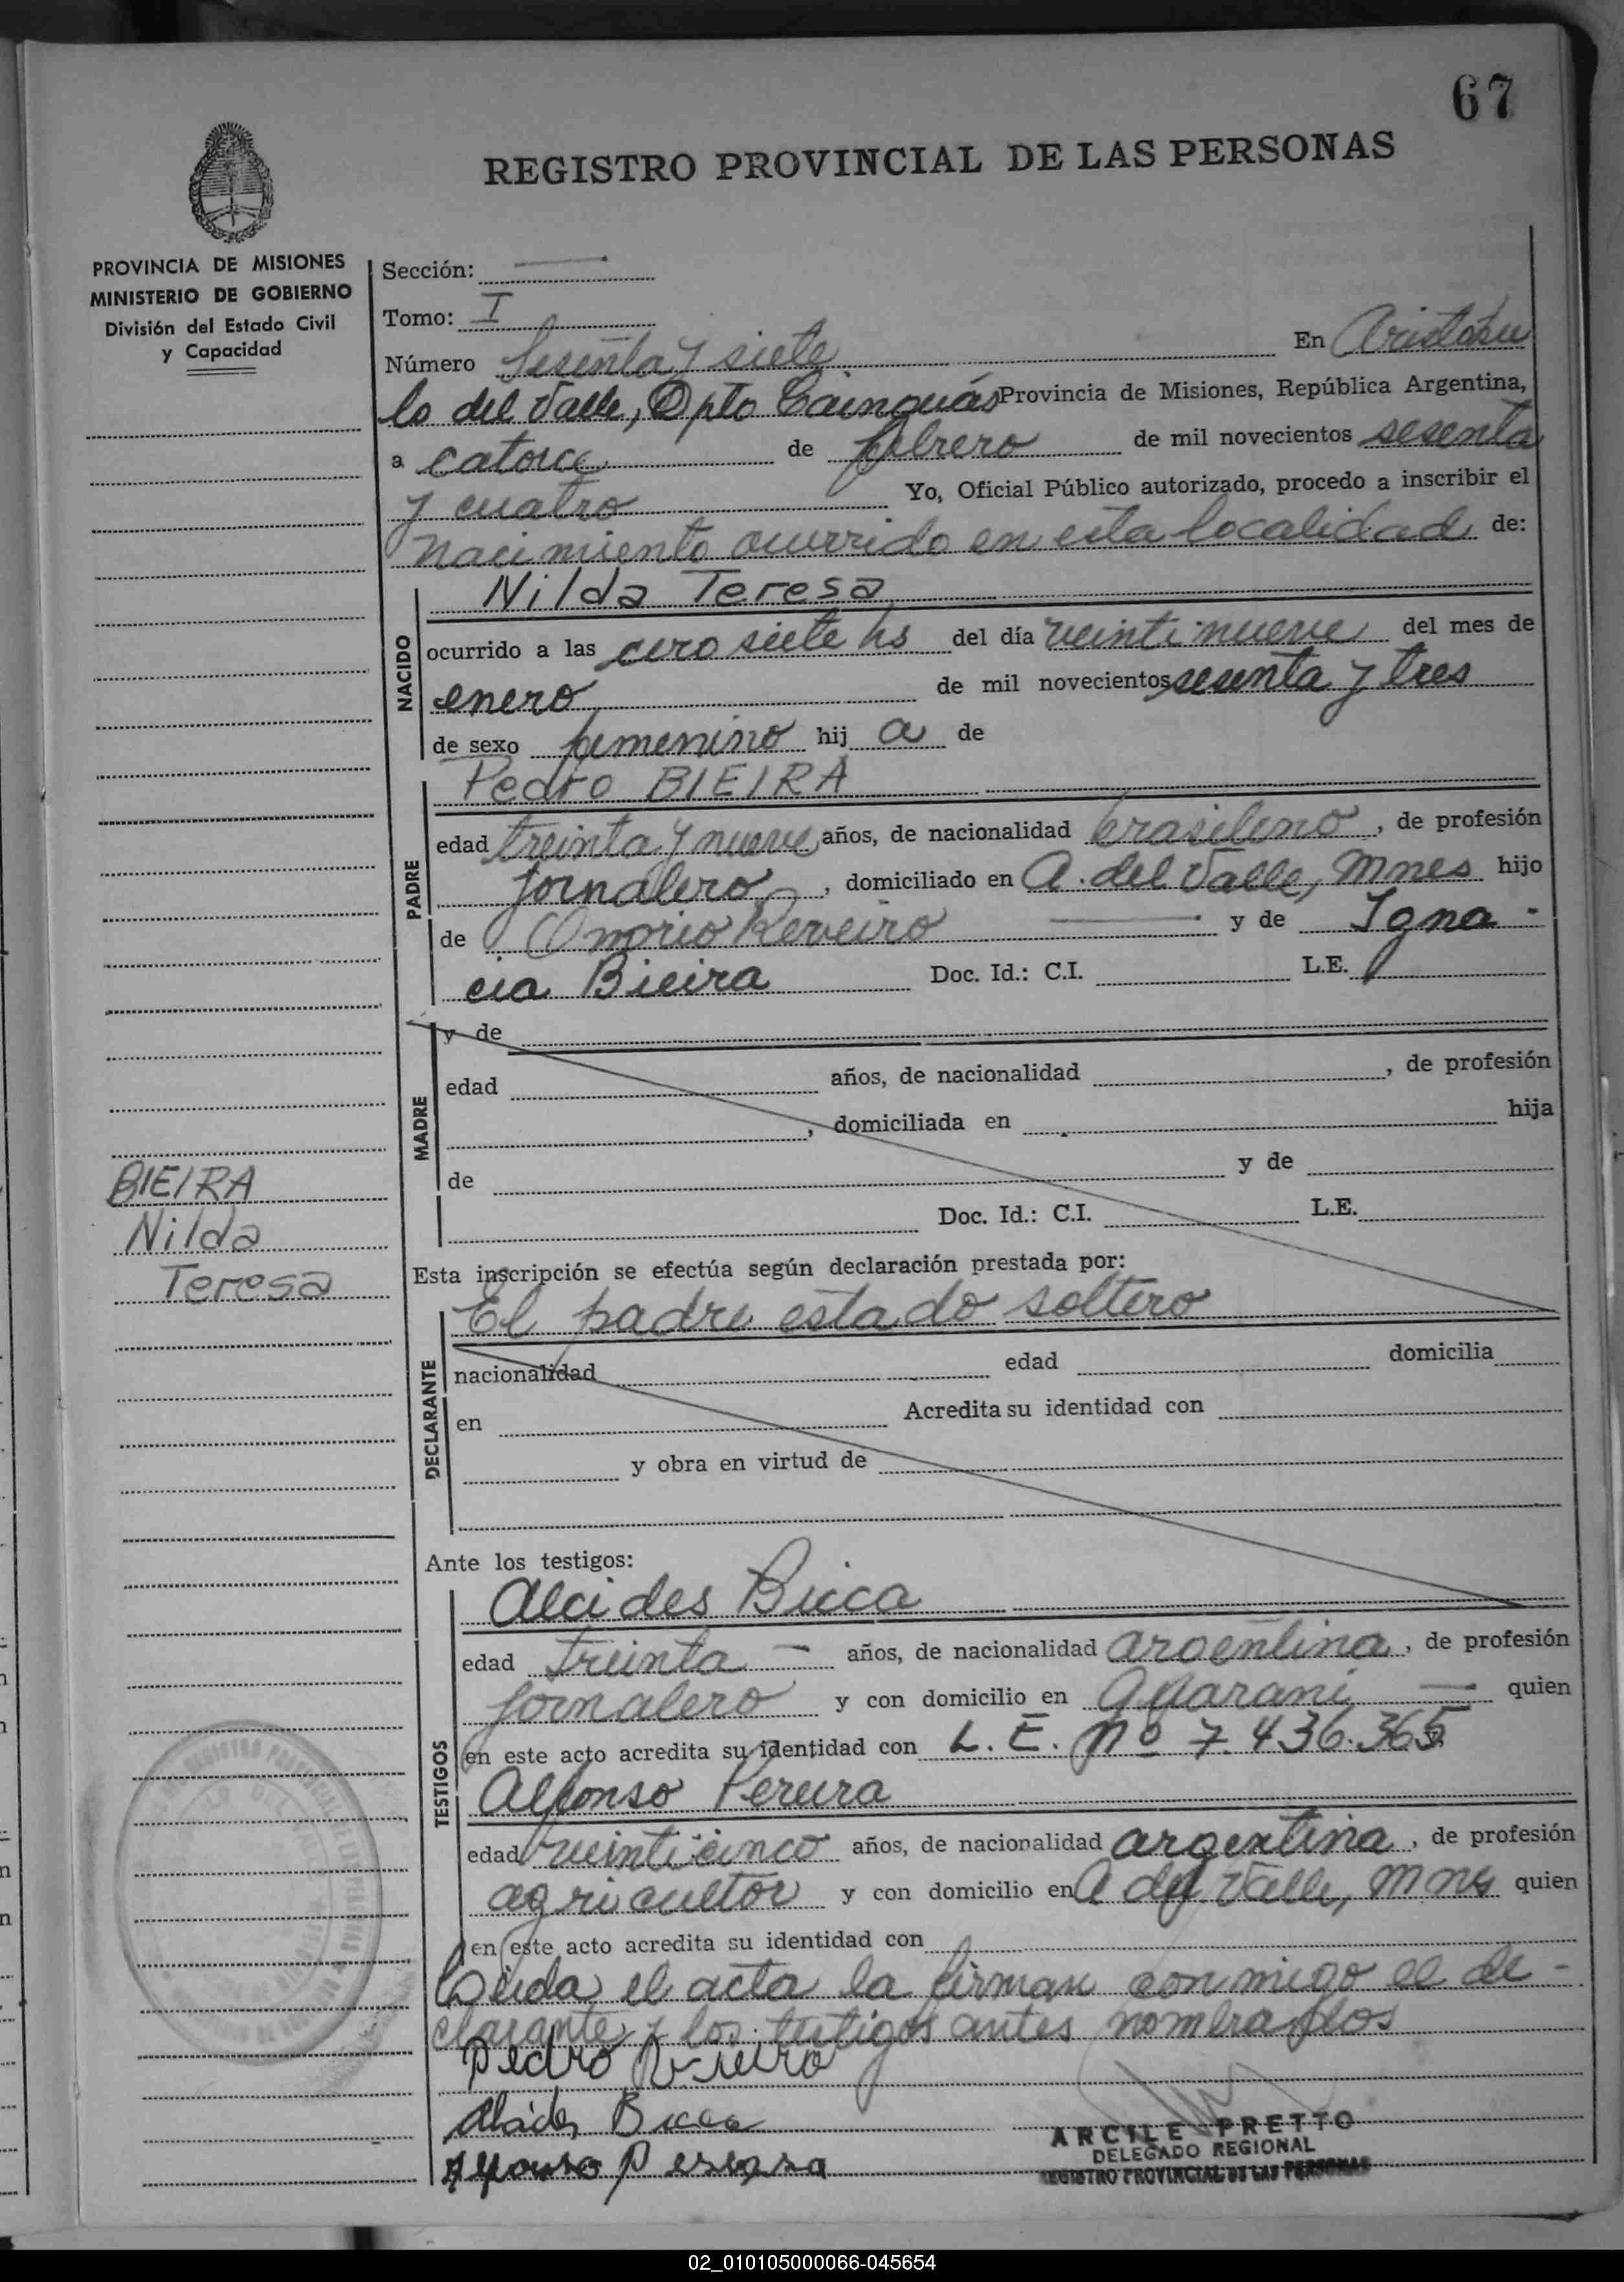 67
REGISTRO PROVINCIAL DE LAS PERSONAS
PROVINCIA DE MISIONES
MINISTERIO DE GOBIERNO
División del Estado Civil
y Capacidad
Sección:
Tomo: I
Número Sesenta y siete En Aristóbu
lo del Valle, Dpto Cainguás Provincia de Misiones, República Argentina,
a catorce de febrero de mil novecientos sesenta
y cuatro Yo, Oficial Público autorizado, procedo a inscribir el
nacimiento ocurrido en esta localidad de:
NACIDO
Nilda Teresa
ocurrido a las cero siete hs del día veintinueve del mes de
enero de mil novecientos sesenta y tres
de sexo femenino hij a de
PADRE
Pedro BIEIRA
edad treinta y nueve años, de nacionalidad brasileno, de profesión
jornalero, domiciliado en A. del Valle, Mnes hijo
de Onorio Reveiro y de Igna-
cia Bieira Doc. Id.: C.I. L.E.
MADRE
y de
edad años, de nacionalidad , de profesión
, domiciliada en hija
de y de
Doc. Id.: C.I. L.E.
BIEIRA
Nilda
Teresa
Esta inscripción se efectúa según declaración prestada por:
DECLARANTE
El padre estado soltero
nacionalidad edad domicilia
en Acredita su identidad con
y obra en virtud de
Ante los testigos:
TESTIGOS
Alcides Bicca
edad treinta años, de nacionalidad argentina, de profesión
jornalero y con domicilio en Guarani quien
en este acto acredita su identidad con L.E. Nº 7.436.365
Alfonso Pereira
edad veinticinco años, de nacionalidad argentina, de profesión
agricultor y con domicilio en A del Valle, Mnes quien
en este acto acredita su identidad con
Leida el acta la firman conmigo el de-
clarante y los testigos antes nombrados
Pedro
Alcides Bicca
Alfonso Pereira
ARCILE PRETTO
DELEGADO REGIONAL
REGISTRO PROVINCIAL DE LAS PERSONAS
02_010105000066-045654